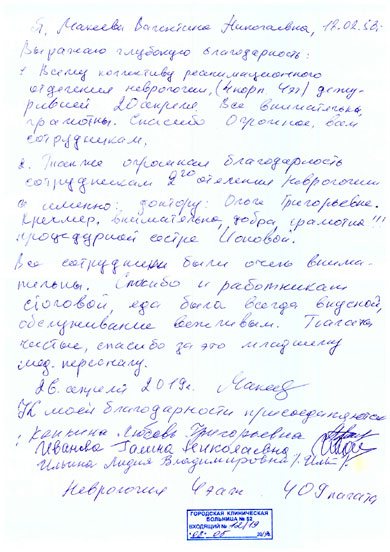 Я, Макеева Валентина Николаевна, 17.02.53г.
Выражаю глубокую благодарность:
1. Всему коллективу реанимационного
отделения неврологии, (4 корп. 4эт) дежу-
рившей 20 апреля. Все внимательны,
грамотны. Спасибо Огромное, вам
сотрудникам,
2. Также огромная благодарность
сотрудникам 2го отделения неврологии
а именно: доктору: Ольге Григорьевне
Кремлер, внимательна, добра, грамотна!!!
процедурной сестре Поповой.
Все сотрудники были очень внима-
тельны. Спасибо и работникам
столовой, еда была всегда вкусной,
обслуживание вежливым. Палата
чистые, спасибо за это младшему
мед. персоналу.
26 апреля 2019г. Макеев
К моей благодарности присоединяются
: Любовь Григорьевна
Иванова Галина Николаевна
Ильина Лидия Владимировна
Неврология 4 этаж. 409 палата
ГОРОДСКАЯ КЛИНИЧЕСКАЯ
БОЛЬНИЦА № 52
ВХОДЯЩИЙ № 12/19
"02" 05 20 г.